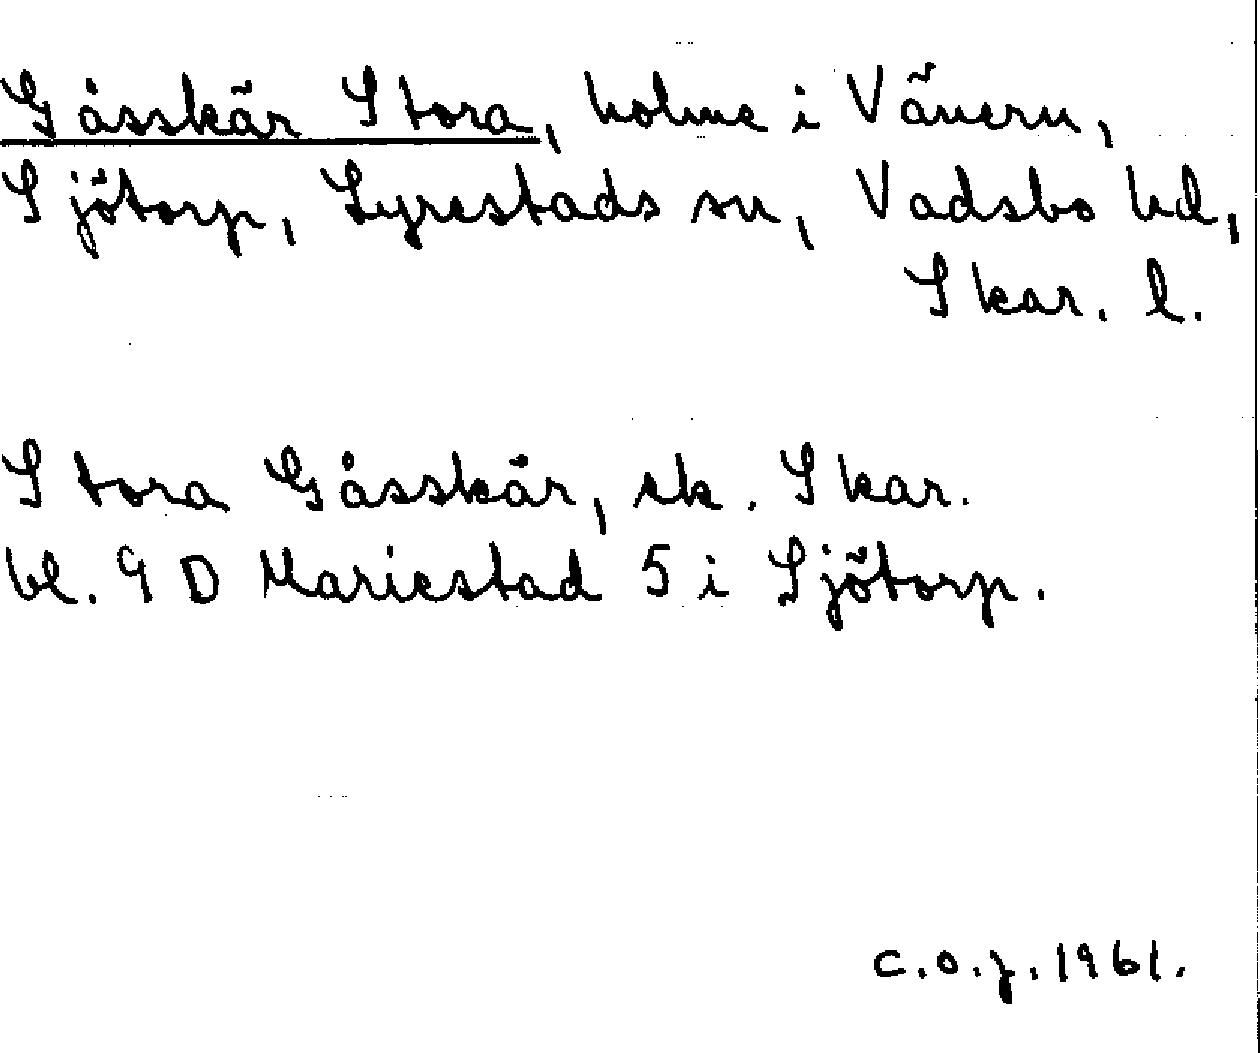 Gåsskär Stora, holme i Vänern,
Sjötorp, Lyrestads sn, Vadsbo hd,
Skar. l.
Stora Gåsskär, ek. Skar.
bl. 9 D Mariestad 5 i Sjötorp.
C.O.J. 1961.